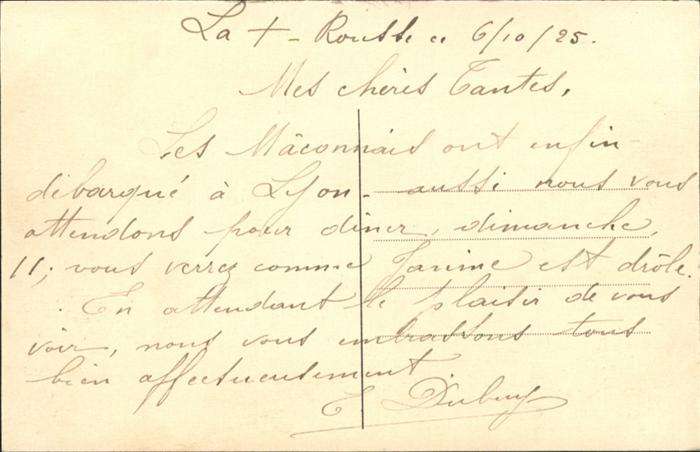 La + - Rousse ce 6/10/25.
Mes chères Tantes,
Les Mâconnais ont enfin
débarqué à Lyon - aussi nous vous
attendons pour dîner, dimanche,
11; vous verrez comme Janine est drôle.
En attendant le plaisir de vous
voir, nous vous embrassons tous
bien affectueusement